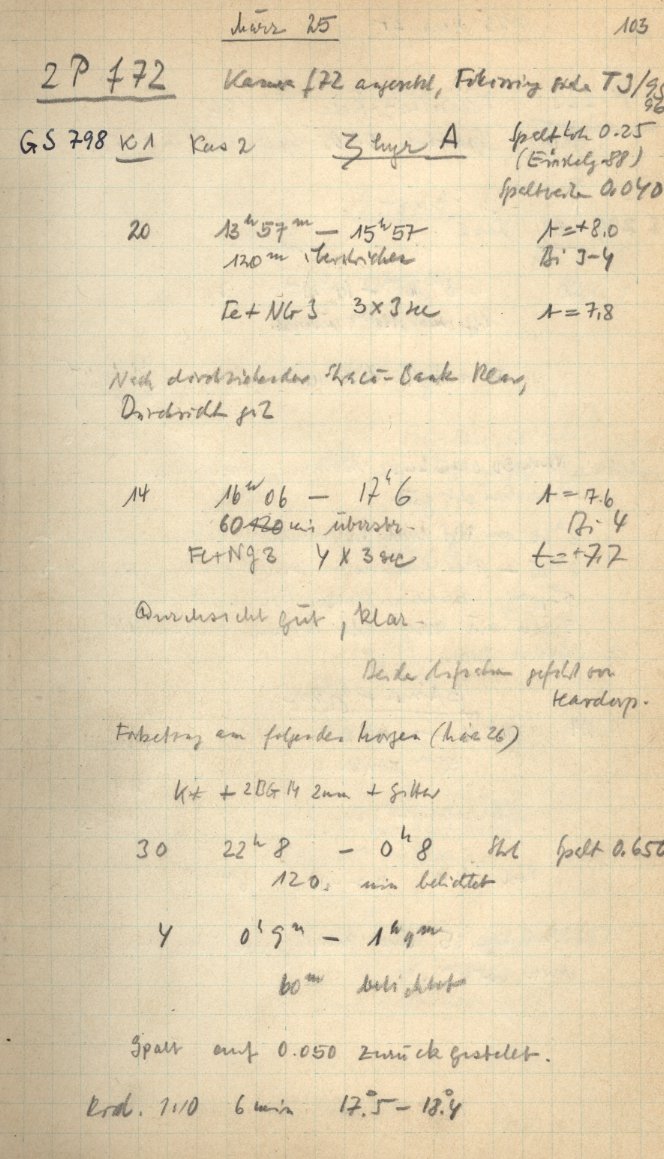 März 25 103
2P f72 Kamera f72 angesetzt, Fokussierung siehe T3/95
96
GS 798 K1 Kas 2 3 A Spalthöh 0.25
(Einstelg 88)
Spaltweite 0.040
20 13h57m — 15h57 t=+8.0
120m überstrichen Bi 3-4
Fe+NG3 3x3 sec t=7,8
Nach durchziehender Bank klar,
Durchsicht gut
14 16h06 — 17h6 t=7.6
60 120 min überstr. Bi 4
Fe+Ng3 4 x 3 sec t=+7.7
Durchsicht gut, klar.
Beide Aufnahmen geführt von
Hardorp.
Fortsetzung am folgenden Morgen (März 26)
+ 2BG14 2mm + Gitter
30 22h8 — 0h8 Spalt 0.650
120 min belichtet
4 0h9m — 1h9m
60m belichtet
Spalt auf 0.050 zurückgestellt.
Rod. 1:10 6 min 17°.5 — 18°.4